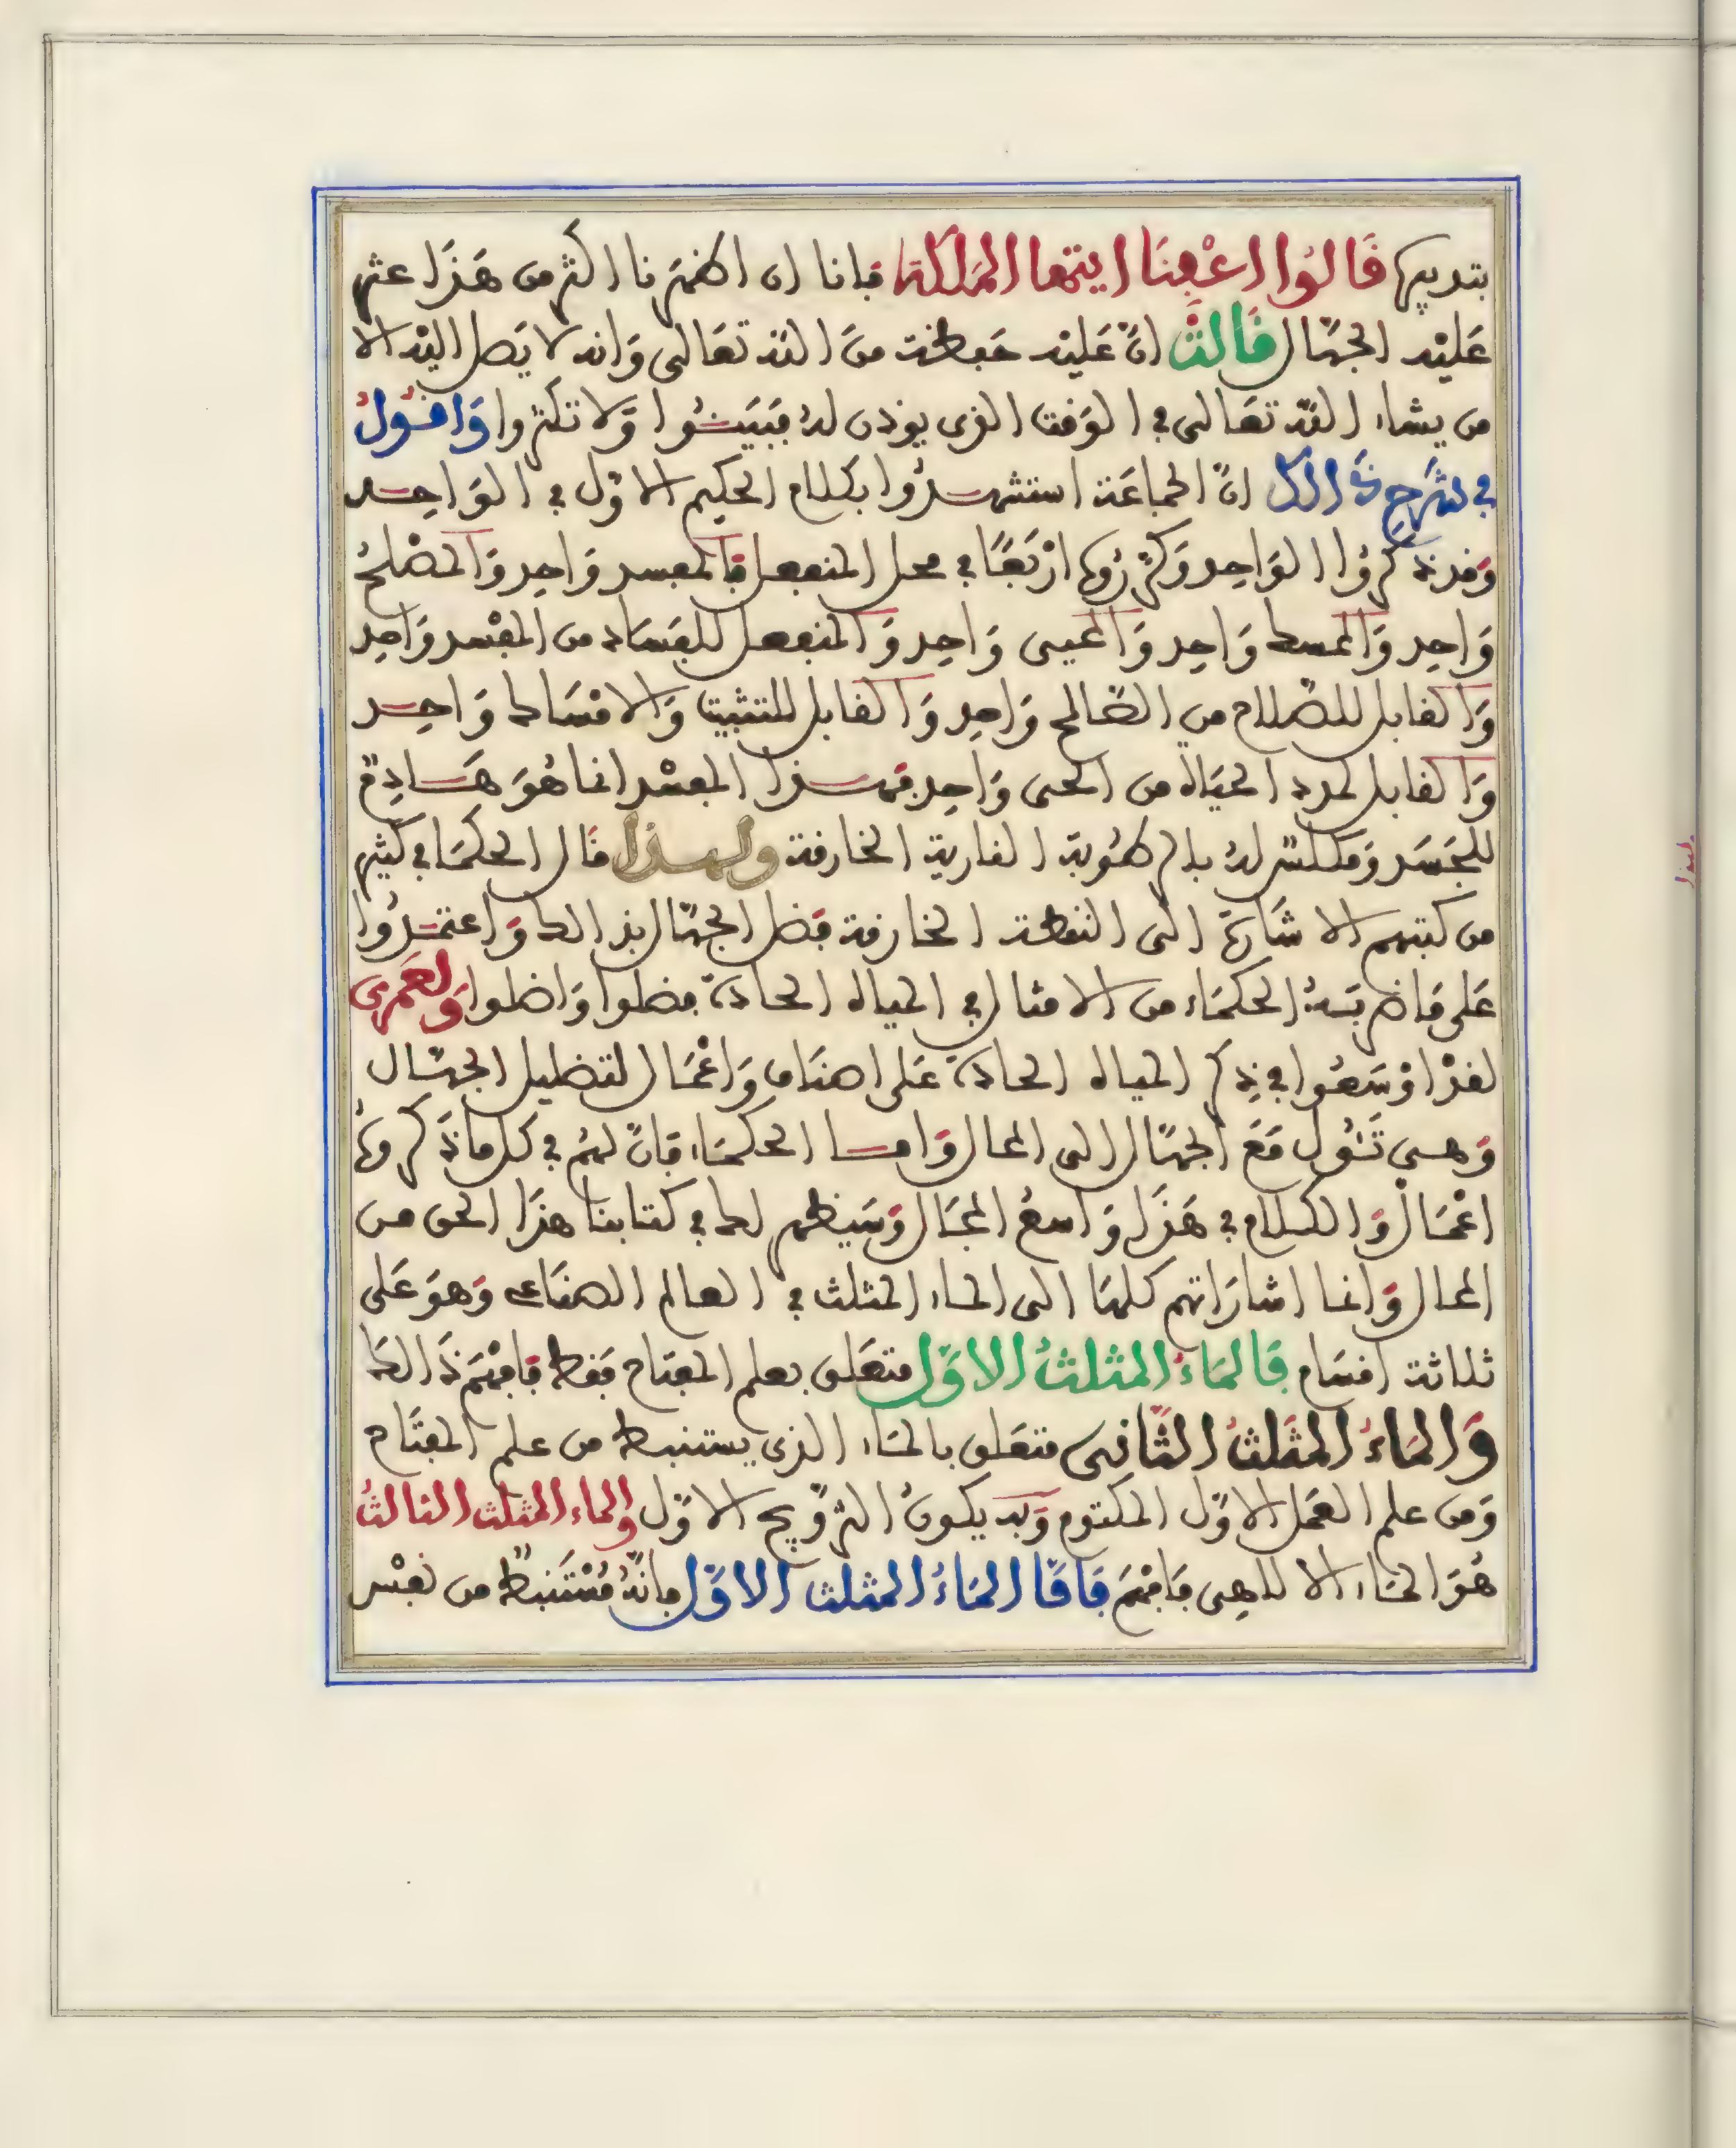 بتدبيرها قَالُوا اعْفِنَا ايتها الملكة فإنا ان اظهرنا اكثر من هَذَا عثر
عَلَيْه الجهّال قَالَتْ انّ عَلَيْه حفظة منَ الله تعَالى وَانه لا يَصل اليْه الا
من يشاء الله تعَالى في الوَقت الذى يوذن لهُ فبَيّنُوا وَّلا تكثروا وَاقُولُ
في شَرحِ ذَالك انّ الجماعَة استشهدُوا بكلام الحكيم الاوّل في الوَاحِد
وَقد ذكرُوا الوَاحِد وَكرّرُوهَا ارْبَعًا في محل المنفعل فَالمفسد وَاحِد وَالمصْلحُ
وَاحِد وَالممسك وَاحِد وَالمحيى وَاحِد وَالمنفعل للفسَاد من المفْسد وَاحِد
وَالقابل للصّلاح من الصّالح وَاحِد وَالقابل للتثبيت وَالامْسَاك وَاحِد
وَالقابل لمدد الحيَاة من الحى وَاحِد فهذا المفسْد انما هُوَ هَادِمٌ
للجَسَد وَمكلّس لهُ بالرطُوبة النارية الخارقة ولهذا قال الحكمَا في كثير
من كتبهم الاشَارَة الى النفطة الخارقة فضل الجهّال بذالك وَاعتمدُوا
عَلى مَا ضربَتهُ الحكمَاء من الامثال في المياه الحادّة فضلوا وَاضلوا وَلعَمْرى
لقدْ اوْسَعُوا في ذِكر المياه الحادّة عَلى اصنَاف وَاعْمَال لتضليل الجهّال
وَهىَ تَئُول مَعَ الجهّال الى المحال وَامّا الحكمَاء فَانّ لهُم في كل مَا ذَكروهُ
اعْمَال وَالكلام في هَذَا وَاسعُ المجَال وَسَيظهر لك في كتابنا هذَا الحق من
المحال وَانما اشارَاتهم كلهَا الى الماء المثلث في العالم الصنَاعى وَهوَ عَلى
ثلاثة اقسَام فَالمَاءُ المثلثُ الاوّل متعَلق بعلم المفتَاح فَقط فَافهَمْ ذَالك
وَالمَاءُ المثَلثُ الثَّانى متعَلق بالمَاء الذى يستنبط من علم المفتَاح
وَمن علم العَمل الاوّل المكتوم وَبه يكونُ التزوّيج الاوّل والماء المثلث الثالثُ
هُوَ المَاء الالاهِى فَافهَمْ فَامَّا المَاءُ المثلث الاوّل فانّهُ مُسْتَنبطٌ من نفْس